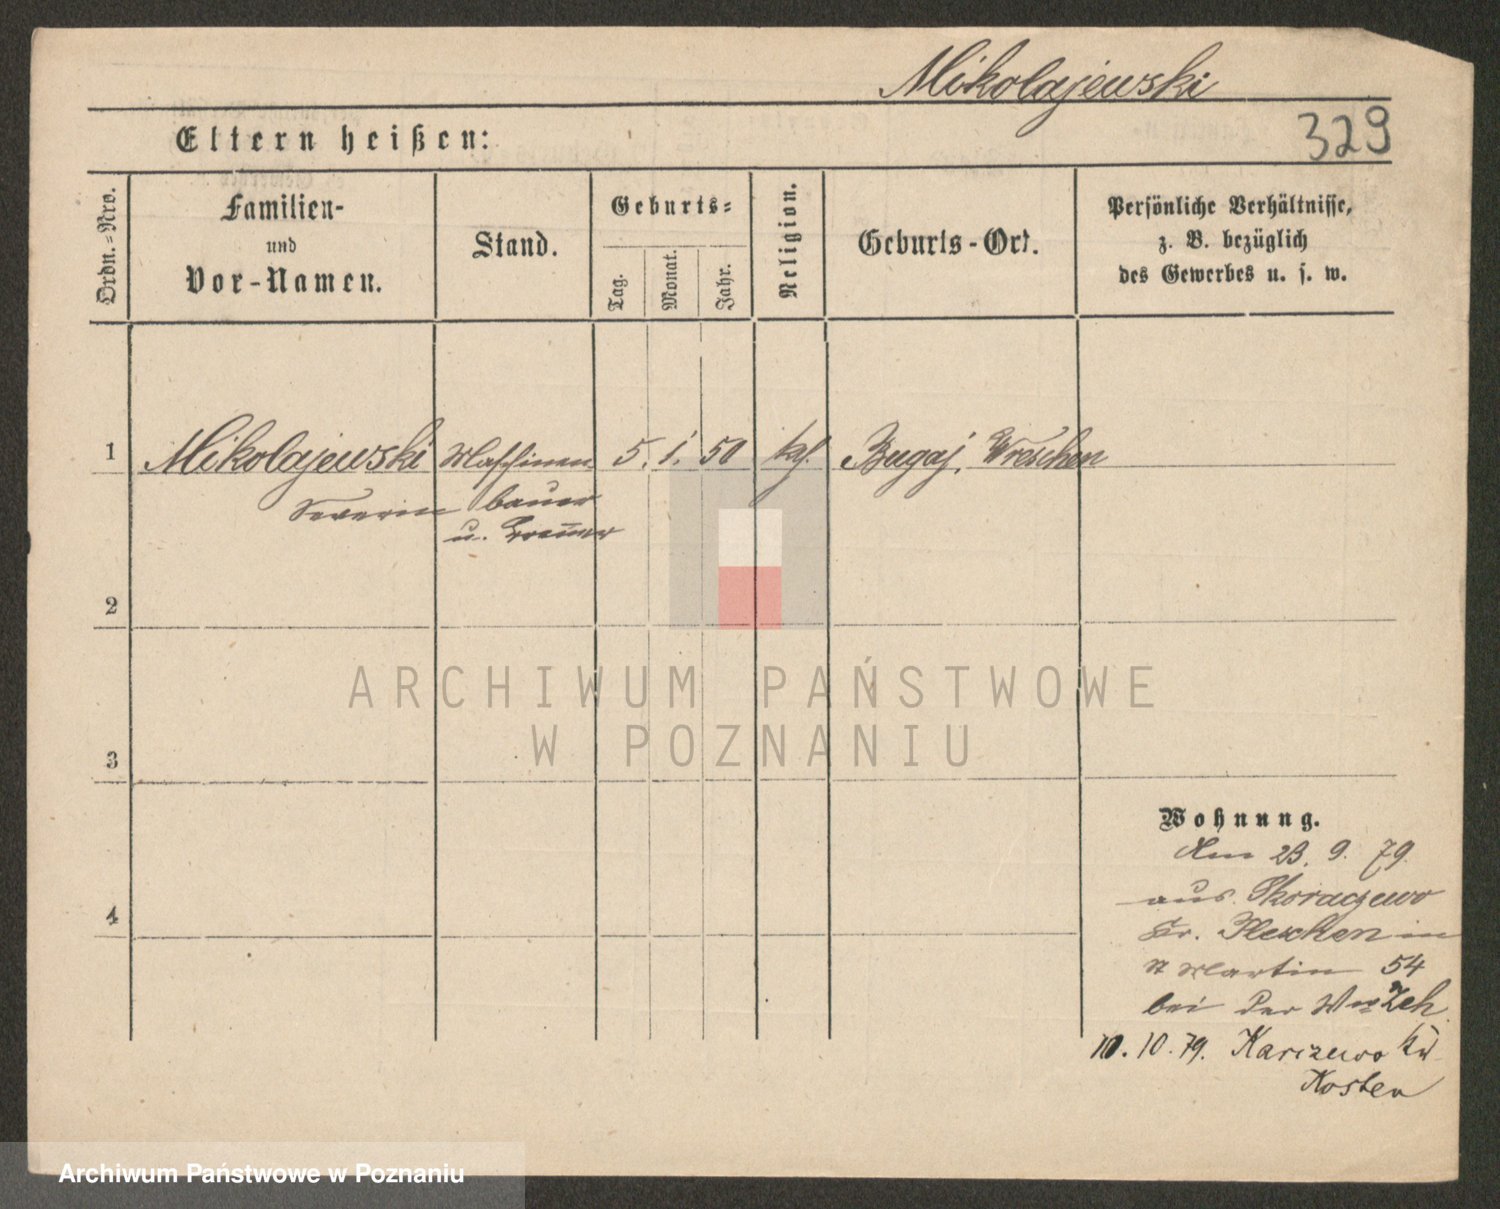 Mikolajewski
329
Eltern heißen:
Ordn.=Nro.
Familien-
und
Vor-Namen.
Stand.
Geburts=
Tag.
Monat.
Jahr.
Religion.
Geburts-Ort.
Persönliche Verhältnisse,
z. B. bezüglich
des Gewerbes u. s. w.
1 Mikolajewski Maschinen 5. 1. 50 kf. Bugaj. Wreschen
Severin bauer
u.
2
3
4
ARCHIWUM PAŃSTWOWE
W POZNANIU
Wohnung.
Am 23. 9. 79
aus Skoraczewo
Kr. Pleschen in
St Martin 54
bei der Zeh
10. 10. 79. Karczewo
Kosten
Archiwum Państwowe w Poznaniu